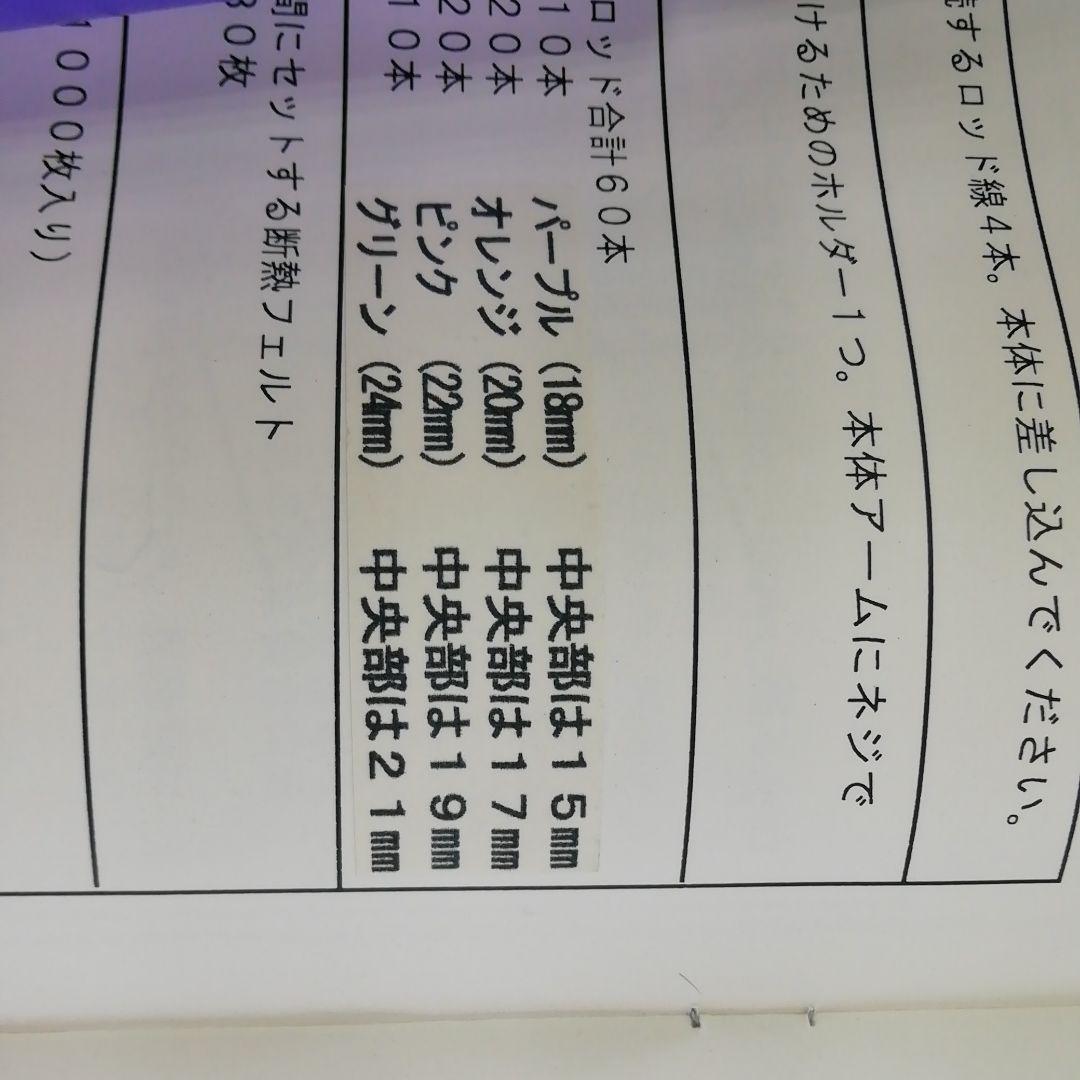 するロッド線4本。本体に差し込んでください。
けるためのホルダー1つ。本体アームにネジで
ロッド合計60本
10本 パープル (18mm) 中央部は15mm
20本 オレンジ (20mm) 中央部は17mm
20本 ピンク (22mm) 中央部は19mm
10本 グリーン (24mm) 中央部は21mm
間にセットする断熱フェルト
30枚
1000枚入り)